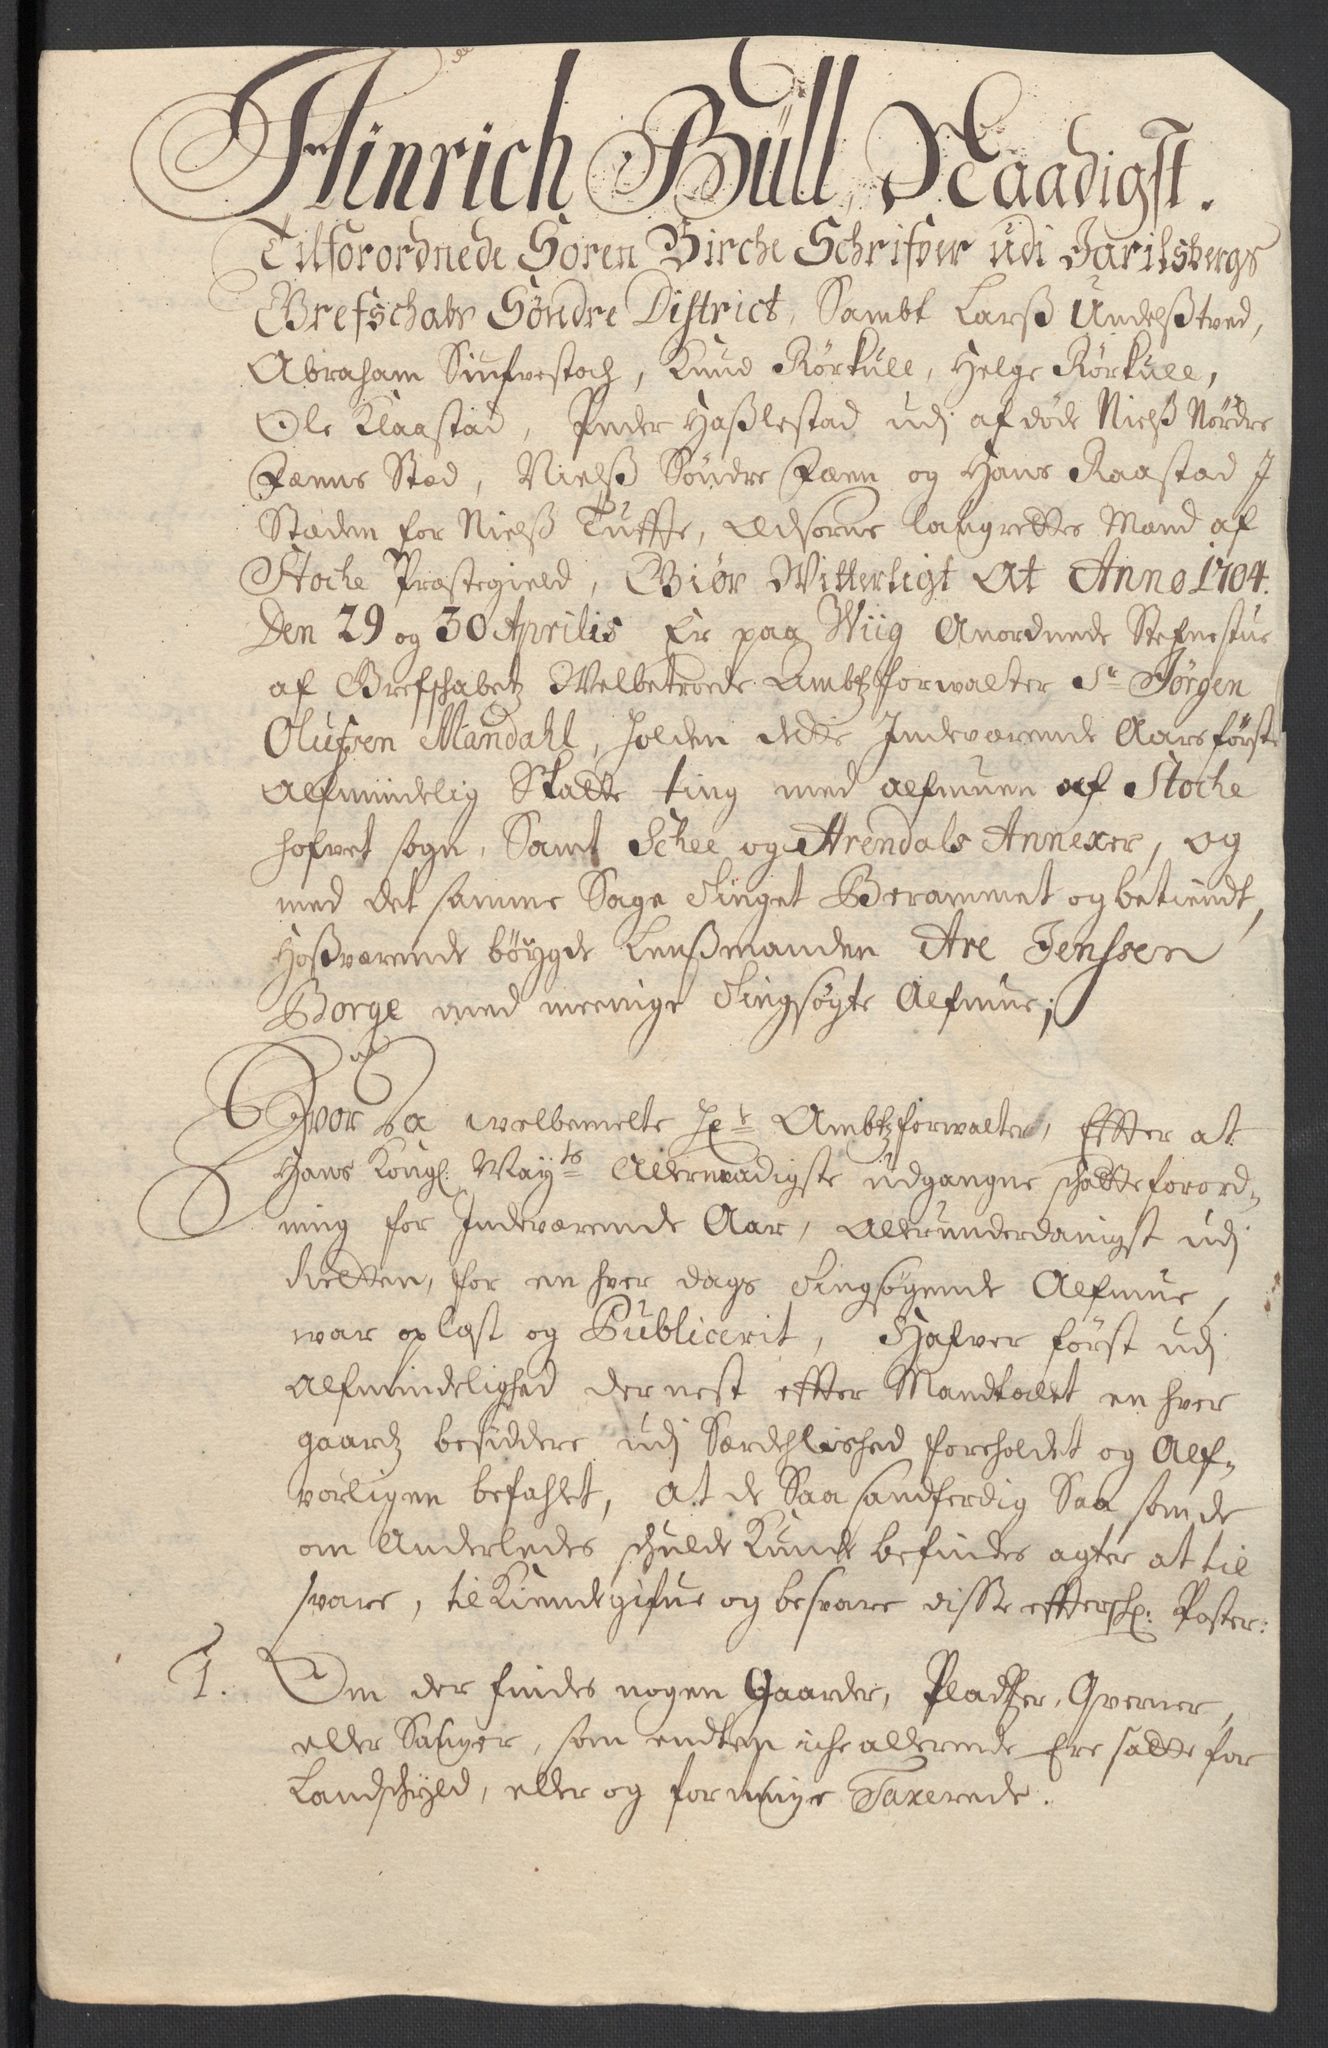 Hinrich Büll, Naadigst.
Tilforordnede Soren Birche Schrifver udi Jarilsbergs
Grefschabs Søndre District, Sambt Larß Undelßtved,
Abraham Siufvestoch, Knud Rörkull, Helge Rörkull,
Ole Klaastad, Peder Haßlestad udj afdöde Nielß Nördre
Fæens Stæd, Nielß Söndre Fæen og Hans Raastad J
Stæden for Nielß Tuffte, Edsorne laugrettes Mænd af
Stoche Præstegield, Giør Witterligt At Anno 1704.
Den 29 og 30 Aprilis Er paa Wiig Anordnede Stefnestue
af Grefschabetz Welbetroede Ambtzforwalter Sr Jörgen
Olufsen Mandahl, holden dette Indeværende Aars förste
Almindelig Skatte ting med almuen af Stoche
hofvet sogn, Samt Schee og Arendals Annexer, og
med det samme Sage Tinget Berammet og betiendt,
Hoßværende böygde Lenßmanden Are Jenssen
Borge med meenige Tingsøgte Almue;
Hvor da welbemelte Hr Ambtzforwalter, Effter at
Hans Kongl: Mayts Allernaadigste udgangne schatteforord-
ning for Indeværende Aar, Allerunderdanigst udj
Retten, for en hver dags Tingsøgende Almue,
war oplæst og Publicerit, Hafver först udj
Almindelighed dernest effter Mandtalet en hver
gaardtz besiddere udj Særdehlished foreholdet og Alf-
vorligen befahlet, at de Saa sandferdig Saa som de
om Anderledes schulde Kunde befindes agter at til
svare, til Kiendegifue og besvare disse effterschr: Poster:
1. Om der findes nogen Gaarder, Pladtzer, Qverner,
eller Sauger, som endten iche allerede Ere satte for
Landschyld, eller og for ringe Taxerede.